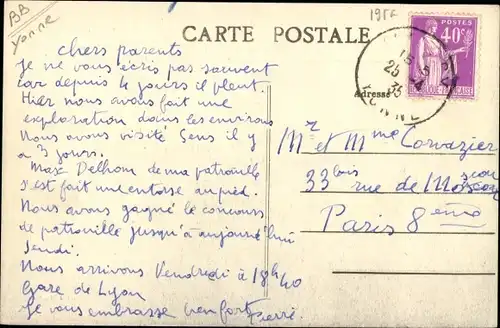 BB
Yonne
1935
CARTE POSTALE
POSTES
40c
YONNE
Adresse
chers parents
Je ne vous écris pas souvent
car depuis 4 jours il pleut.
Hier nous avons fait une
exploration dans les environs
Nous avons visité Sens il y
a 3 jours.
Max Delhom de ma patrouille
s'est fait une entorse au pied.
Nous avons gagné le concours
de patrouille jusqu'à aujourd'hui
Jeudi.
Nous arrivons Vendredi à 18h40
Gare de Lyon
Je vous embrasse bien fort
Pierre.
Mr et Mme Corvazier
33 bis rue de Moscou
Paris 8ème